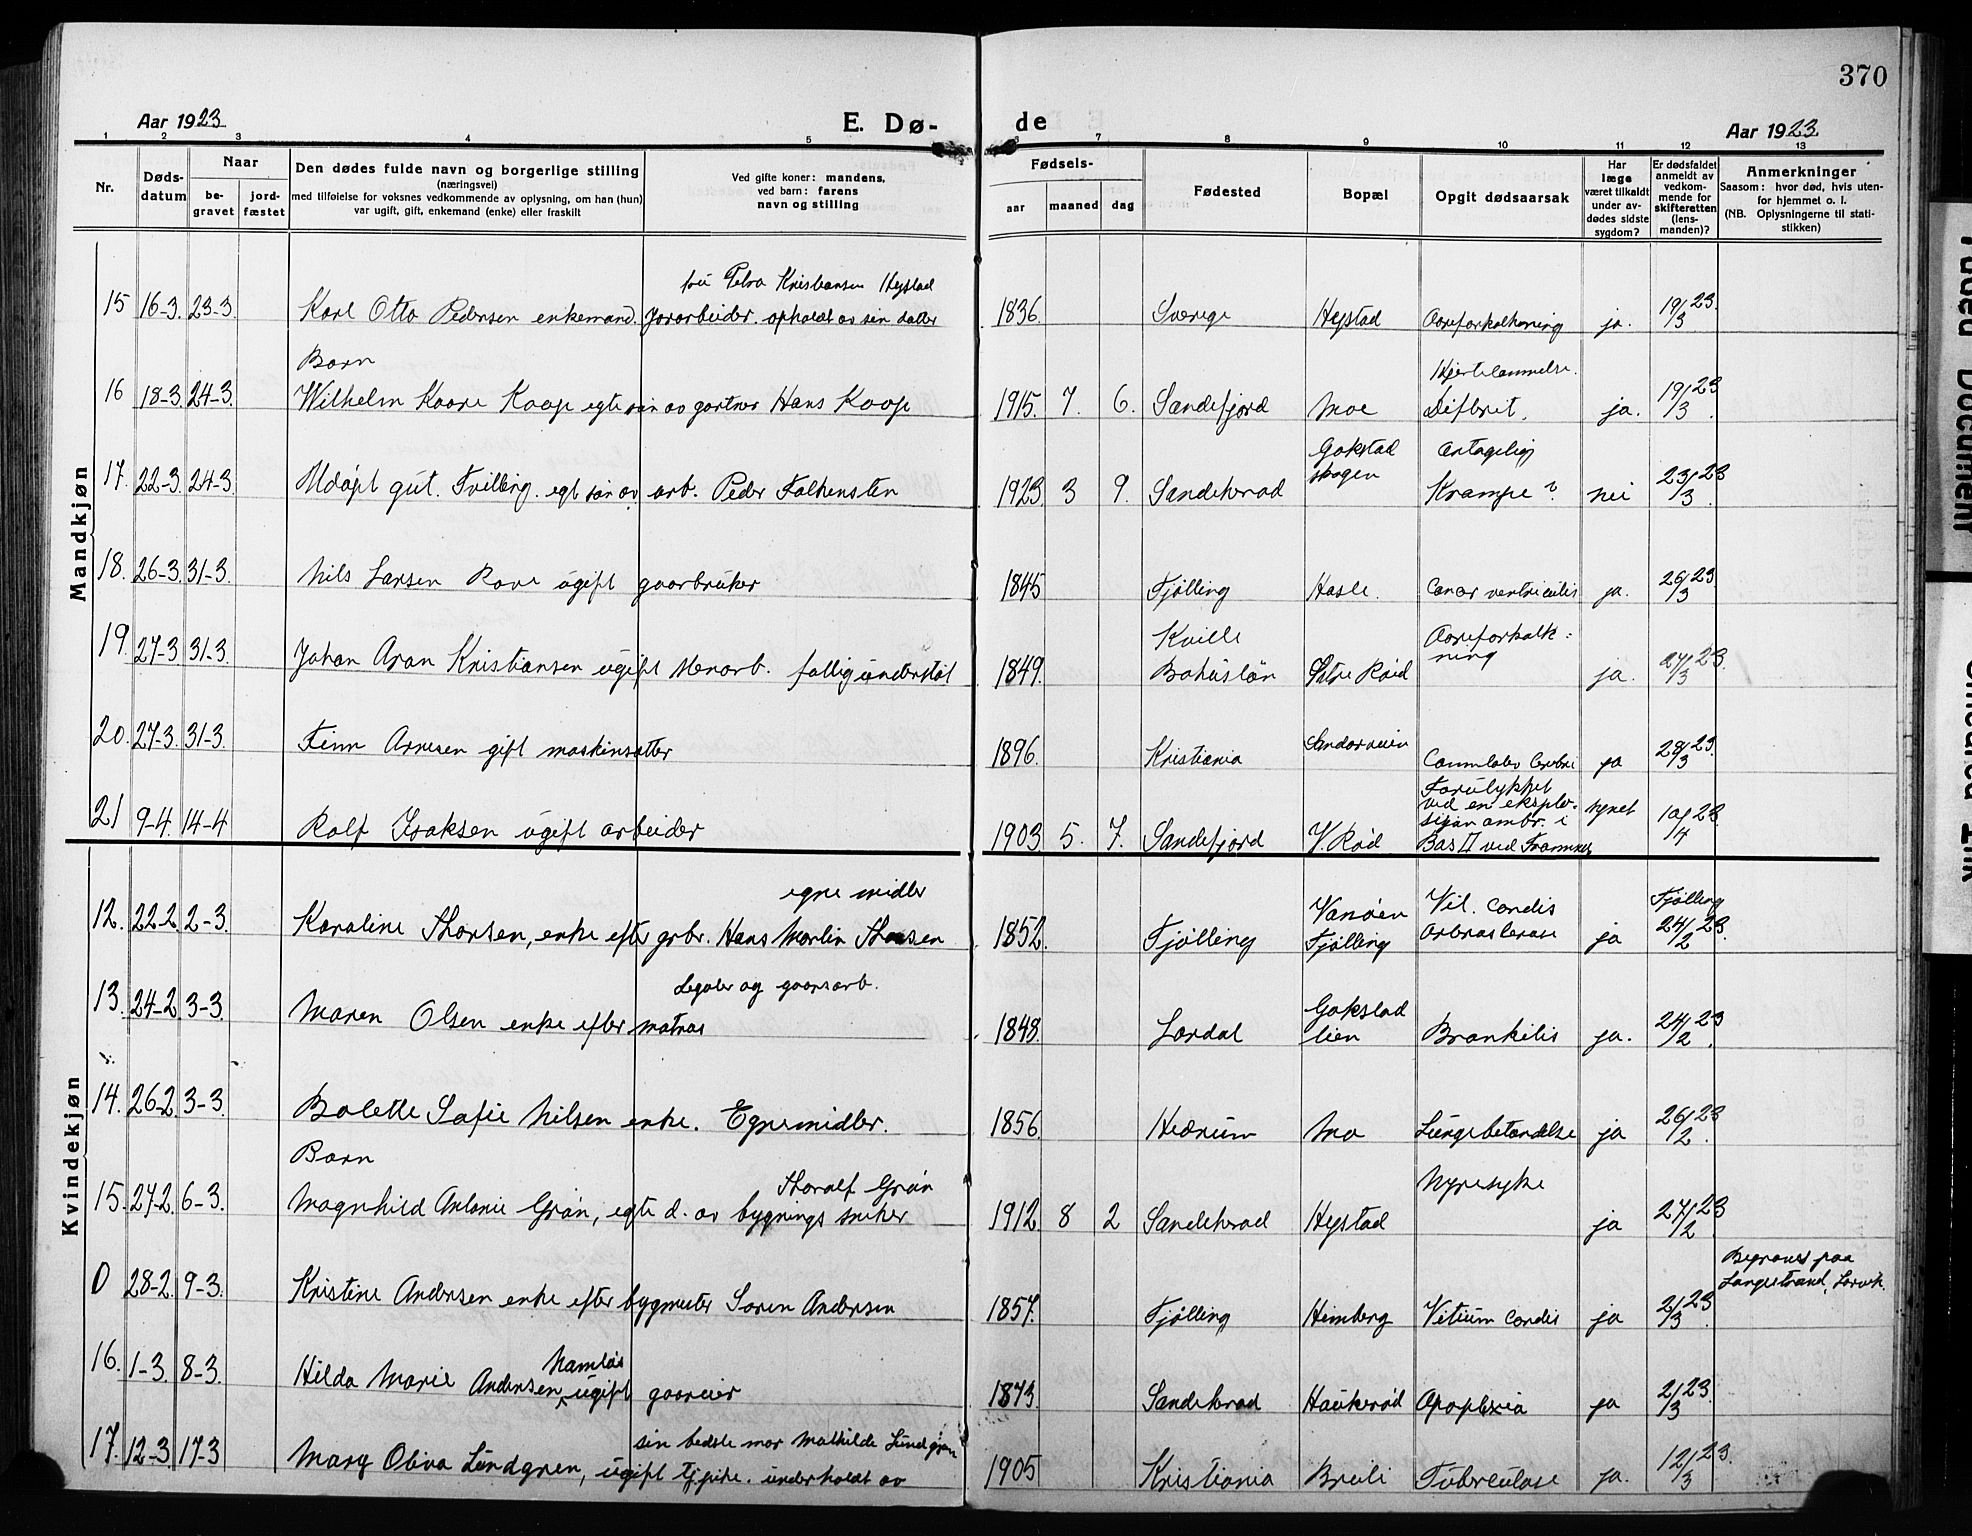 370
Aar 1923
E. Dø-
de
Aar 1923
1 2 3 4 5 6 7 8 9 10 11 12 13
Nr.
Døds-
datum
Naar
be-
gravet
jord-
fæstet
Den dødes fulde navn og borgerlige stilling
(næringsvei)
med tilføielse for voksnes vedkommende av oplysning, om han (hun)
var ugift, gift, enkemand (enke) eller fraskilt
Ved gifte koner: mandens,
ved barn: farens
navn og stilling
Fødsels-
aar
maaned
dag
Fødested
Bopæl
Opgit dødsaarsak
Har
læge
været tilkaldt
under av-
dødes sidste
sygdom?
Er dødsfaldet
anmeldt av
vedkom-
mende for
skifteretten
(lens-
manden)?
Anmerkninger
Saasom: hvor død, hvis uten-
for hjemmet o. l.
(NB. Oplysningerne til stati-
stikken)
Mandkjøn
Petra Kristiansen Hystad
15 16-3. 23-3. Karl Otto Pedersen enkemand. Jorarbeider. opholdt av sin datter 1836. Sverige Hystad Aareforkalkning ja. 19/3 23.
Barn
Hjertelammelse.
16 18-3. 24-3. Wilhelm Kaare Kaop egte søn av gartner Hans Kaop 1915. 7. 6. Sandefjord Moe Difterit. ja. 19/3 23.
Gokstad Antagelig
17. 22-3. 24-3. Udøpt gut. Tvilling. egt søn av arb. Peder Falkensten 1923 3 9. Sandeherad skogen Krampe? nei 23/3 23
18. 26-3. 31-3. Nils Larsen Rove ugift gaarbruker 1845 Tjølling Hasle. Cancer ventriculis ja. 26/3 23
Kville Aareforkalk-
ning
19. 27-3. 31-3. Johan Aron Kristiansen ugift stenarb. fattigunderstøt 1849. Bohuslän Sætre Røid ja. 27/3 23.
20. 27-3. 31-3. Finn Arnesen gift maskinsetter 1896. Kristiania Sandarveien Cerebri ja 28/3 23.
Forulykket
ved en eksplo-
sijon ombr. i
21 9-4. 14-4 Rolf Isaksen ugift arbeider 1903 5. 7. Sandefjord V. Rød Bas II ved Framnes synet 10/4 23.
Kvindekjøn
egne midler Vit. cordis Tjølling
12. 22-2. 2-3. Karoline Thorsen, enke efter grbr. Hans Martin Thorsen 1852. Tjølling Vanøen Tjølling ja 24/2 23.
Legater og gaarsarb. Gokstad
13. 24-2. 3-3. Maren Olsen enke efter matros 1843. Lardal lien Bronkitis ja. 24/2 23.
14. 26-2. 3-3. Bolette Sofie Nilsen enke. Egne midler. 1856. Hedrum Mo Lungebetændelse ja 26/2 23.
Barn
Thoralf Grøn Nyresyke
15. 27-2. 6-3. Magnhild Antonie Grøn, egte d. av bygnings sneker 1912. 8 2 Sandeherad Hystad ja 27/2 23
Begravet paa
Langestrand, Larvik.
0 28-2. 9-3. Kristine Andersen enke efter bygmester Søren Andersen 1857. Tjølling Himberg Vitium cordis ja 2/3 23.
Namløs
16. 1-3. 8-3. Hilda Marie Andersen ugift gaareier 1873. Sandeherad Haukerød Apoplexia ja 2/3 23.
sin bedste mor Mathilde Lundgren
17. 12-3. 17-3 Mary Oliva Lundgren, ugift tjpike. underholdt av 1905 Kristiania Breili Tuberculose ja. 12/3 23.